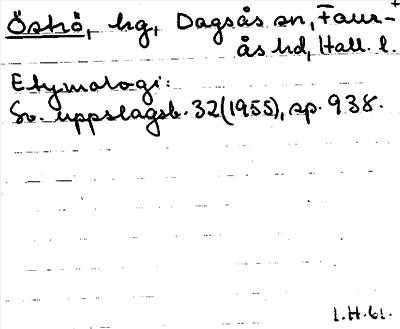 Öströ, hg, Dagsås sn, Faur-
ås hd, Hall. l.
Etymologi:
Sv. uppslagsb. 32(1955), sp. 938.
I.H.61.